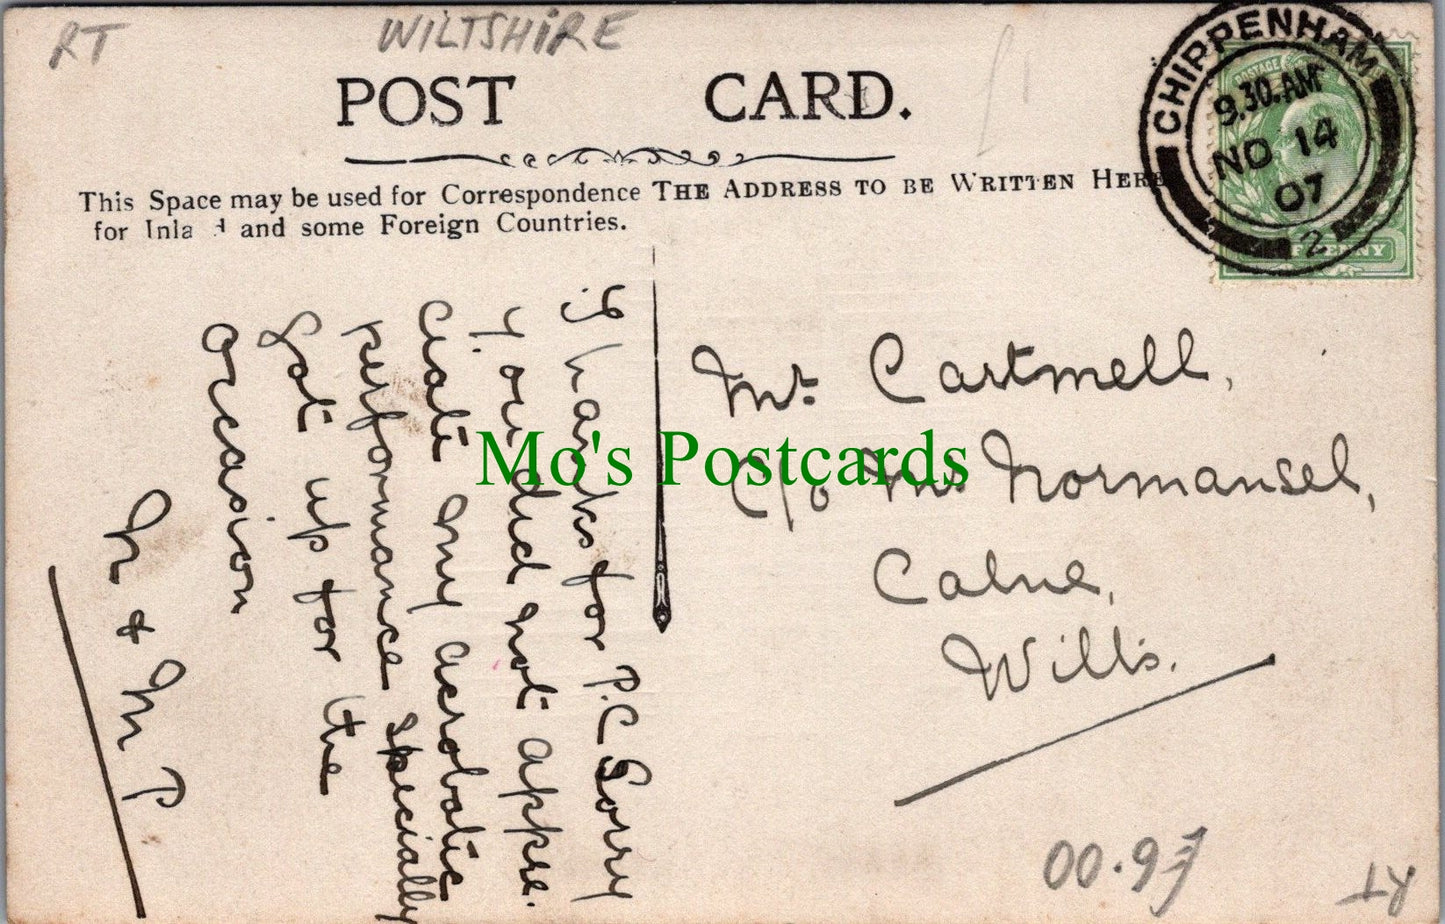 RT
WILTSHIRE
POST CARD.
This Space may be used for Correspondence
for Inland and some Foreign Countries.
THE ADDRESS TO BE WRITTEN HERE
CHIPPENHAM
9.30.AM
NO 14
07
2
POSTAGE
PENNY
Thanks for P.C Sorry
you did not appre-
ciate my acrobatic
performance specially
got up for the
occasion
M P
Mr. Cartmell,
C/o Mr Normansel,
Calne,
Wilts.
Mo's Postcards
£6.00
RT